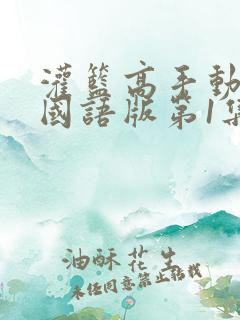 灌籃高手動
國語版第1集
油酥花生
未经同意禁止转载